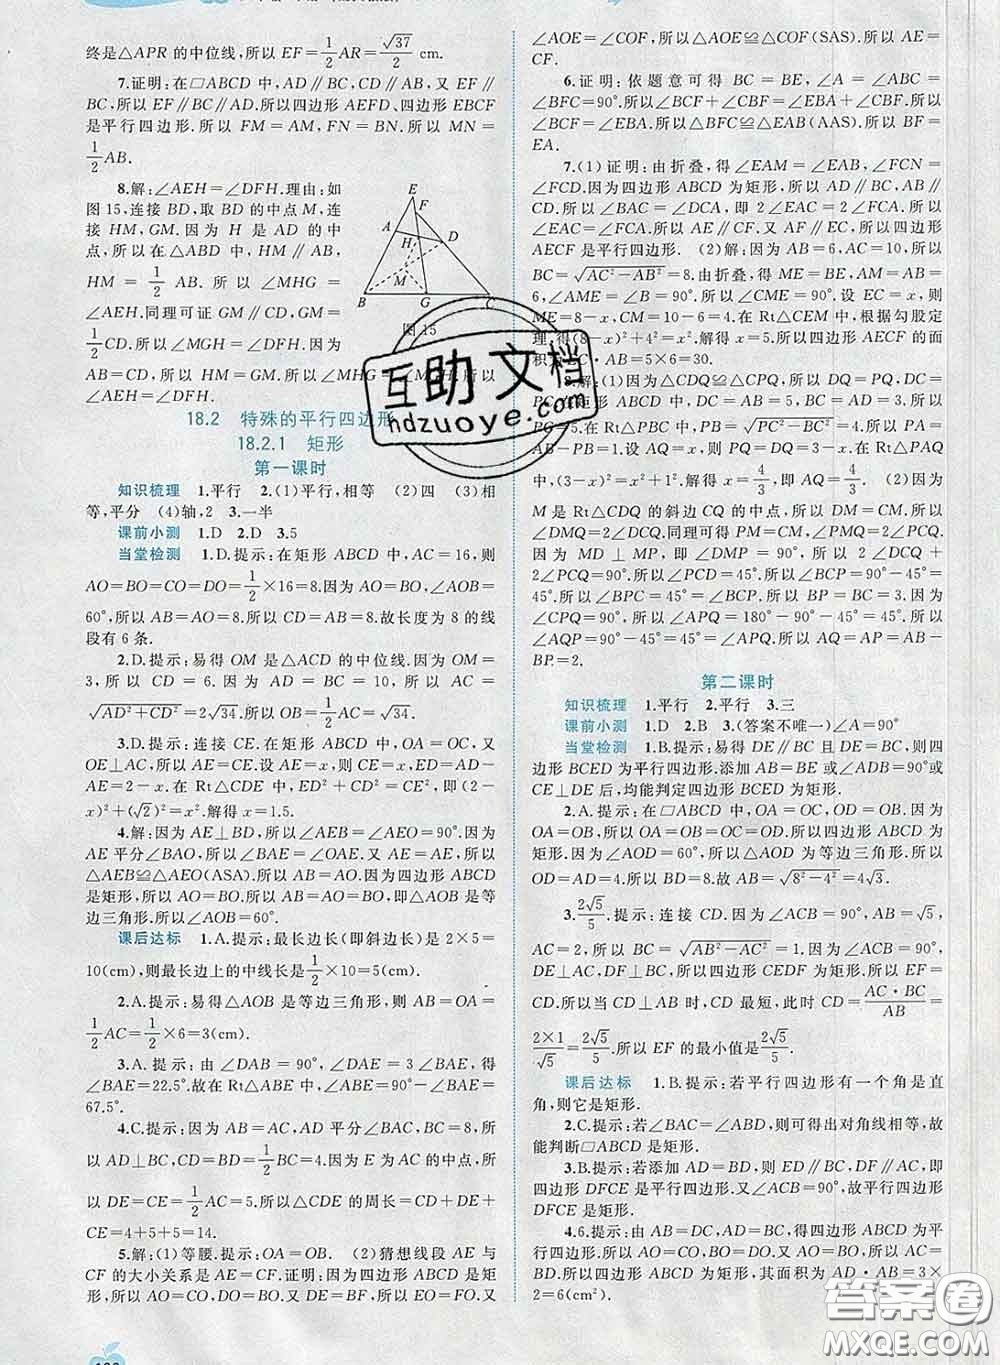 终是△APR 的中位线,所以 EF=1/2AR=√37/2 cm.
7.证明:在□ABCD 中,AD∥BC,CD∥AB,又 EF∥
BC,所以 EF∥BC∥AD.所以四边形 AEFD、四边形 EBCF
是平行四边形.所以 FM=AM,FN=BN.所以 MN=
1/2AB.
8.解:∠AEH=∠DFH.理由:如
图 15,连接 BD,取 BD 的中点 M,连
接 HM,GM.因为 H 是 AD 的中
点,所以在△ABD 中,HM∥AB,
HM=1/2AB.所以∠MHG=
∠AEH.同理可证 GM∥CD,GM=
1/2CD.所以∠MGH=∠DFH.因为
AB=CD,所以 HM=GM.所以∠MHG=∠MGH.所以
∠AEH=∠DFH.
E
F
A
D
H
M
B
G
C
图 15
18.2 特殊的平行四边形
18.2.1 矩形
第一课时
知识梳理 1.平行 2.(1)平行,相等 (2)四 (3)相
等,平分 (4)轴,2 3.一半
课前小测 1.D 2.D 3.5
当堂检测 1.D.提示:在矩形 ABCD 中,AC=16,则
AO=BO=CO=DO=1/2×16=8.因为 AO=BO,∠AOB=
60°,所以 AB=AO=8.所以 CD=AB=8.故长度为 8 的线
段有 6 条.
2.D.提示:易得 OM 是△ACD 的中位线.因为 OM=
3,所以 CD=6.因为 AD=BC=10,所以 AC=
√AD²+CD²=2√34.所以 OB=1/2AC=√34.
3.D.提示:连接 CE.在矩形 ABCD 中,OA=OC,又
OE⊥AC,所以 AE=CE.设 AE=x,则 CE=x,ED=
2-x.在 Rt△CDE 中,ED²+CD²=CE²,即(2-
x)²+(√2)²=x².解得 x=1.5.
4.解:因为 AE⊥BD,所以∠AEB=∠AEO=90°.因为
AE 平分∠BAO,所以∠BAE=∠OAE.又 AE=AE,所以
△AEB≌△AEO(ASA).所以 AB=AO.因为四边形 ABCD
是矩形,所以 AO=BO.所以 AB=AO=BO.所以△ABO 是等
边三角形.所以∠AOB=60°.
课后达标 1.A.提示:最长边长(即斜边长)是 2×5=
10(cm),则最长边上的中线长是1/2×10=5(cm).
2.A.提示:易得△AOB 是等边三角形,则 AB=OA=
1/2AC=1/2×6=3(cm).
3.A.提示:由∠DAB=90°,∠DAE=3∠BAE,得
∠BAE=22.5°.故在 Rt△ABE 中,∠ABE=90°-∠BAE=
67.5°.
4.C.提示:因为 AB=AC,AD 平分∠BAC,BC=8,所
以 AD⊥BC,CD=BD=1/2BC=4.因为 E 为 AC 的中点,所
以 DE=CE=1/2AC=5.所以△CDE 的周长=CD+DE+
CE=4+5+5=14.
5.解:(1)等腰.提示:OA=OB. (2)猜想线段 AE 与
CF 的大小关系是 AE=CF.证明:因为四边形 ABCD 是矩
形,所以 AO=CO=BO=DO.所以 EO=FO.又
∠AOE=∠COF,所以△AOE≌△COF(SAS).所以 AE=
CF.
6.证明:依题意可得 BC=BE,∠A=∠ABC=
∠BFC=90°.所以∠BCF+∠CBF=∠EBA+∠CBF.所以
∠BCF=∠EBA.所以△BFC≌△EAB(AAS).所以 BF=
EA.
7.(1)证明:由折叠,得∠EAM=∠EAB,∠FCN=
∠FCD.因为四边形 ABCD 为矩形,所以 AD∥BC,AB∥
CD.所以∠BAC=∠DCA,即 2∠EAC=2∠FCA.所以
∠EAC=∠FCA.所以 AE∥CF.又 AF∥EC,所以四边形
AECF 是平行四边形. (2)解:因为 AB=6,AC=10,所以
BC=√AC²-AB²=8.由折叠,得 ME=BE,AM=AB=
6,∠AME=∠B=90°,所以∠CME=90°.设 EC=x,则
ME=8-x,CM=10-6=4.在 Rt△CEM 中,根据勾股定
理,得(8-x)²+4²=x².解得 x=5.所以四边形 AECF 的面
积为 EC·AB=5×6=30.
8.解:(1)因为△CDQ≌△CPQ,所以 DQ=PQ,PC=
DC.在矩形 ABCD 中,DC=AB=5,BC=AD=3,所以
PC=5.在 Rt△PBC 中,PB=√PC²-BC²=4,所以 PA=
AB-PB=1.设 AQ=x,则 DQ=PQ=3-x.在 Rt△PAQ
中,(3-x)²=x²+1².解得 x=4/3,即 AQ=4/3. (2)因为
M 是 Rt△CDQ 的斜边 CQ 的中点,所以 DM=CM,所以
∠DMQ=2∠DCQ.同理可得 PM=CM,∠PMQ=2∠PCQ.
因为 MD⊥MP,即∠DMP=90°,所以 2∠DCQ+
2∠PCQ=90°.所以∠PCD=45°.所以∠BCP=90°-45°=
45°.所以∠BPC=45°=∠BCP.所以 BP=BC=3.因为
∠CPQ=90°,所以∠APQ=180°-90°-45°=45°.所以
∠AQP=90°-45°=45°=∠APQ.所以 AQ=AP=AB-
BP=2.
第二课时
知识梳理 1.平行 2.平行 3.三
课前小测 1.D 2.B 3.(答案不唯一)∠A=90°
当堂检测 1.B.提示:易得 DE∥BC 且 DE=BC,则四
边形 BCED 为平行四边形.添加 AB=BE 或∠ADB=90°或
CE⊥DE 后,均能判定四边形 BCED 为矩形.
2.A.提示:在□ABCD 中,OA=OC,OD=OB.因为
OA=OB,所以 OA=OC=OD=OB.所以四边形 ABCD 为
矩形.因为∠AOD=60°,所以△AOD 为等边三角形.所以
OD=AD=4.所以 BD=8.故 AB=√8²-4²=4√3.
3.2√5/5.提示:连接 CD.因为∠ACB=90°,AB=√5,
AC=2,所以 BC=√AB²-AC²=1.因为∠ACB=90°,
DE⊥AC,DF⊥BC,所以四边形 CEDF 为矩形.所以 EF=
CD.所以当 CD⊥AB 时,CD 最短,此时 CD=AC·BC/AB=
2×1/√5=2√5/5.所以 EF 的最小值是2√5/5.
课后达标 1.B.提示:若平行四边形有一个角是直
角,则它是矩形.
2.C.提示:若∠BAC=∠ABD,则可得出对角线相等,故
能判断□ABCD 是矩形.
3.B.提示:若添加 AD=BD,则 EC=BD=AD,即
四边形 DFCE 是平行四边形.又∠ACB=90°,故平行四边形
DFCE 是矩形.
4.6.提示:由 AB=DC,AD=BC,得四边形 ABCD 为平
行四边形.所以 AO=CO,BO=DO.又 AO=BO,所以
AC=BD.所以四边形 ABCD 是矩形,其面积为 AD·AB=3×
2=6(cm²).
互助文档
hdzuoye.com
答案圈
MXQE.COM